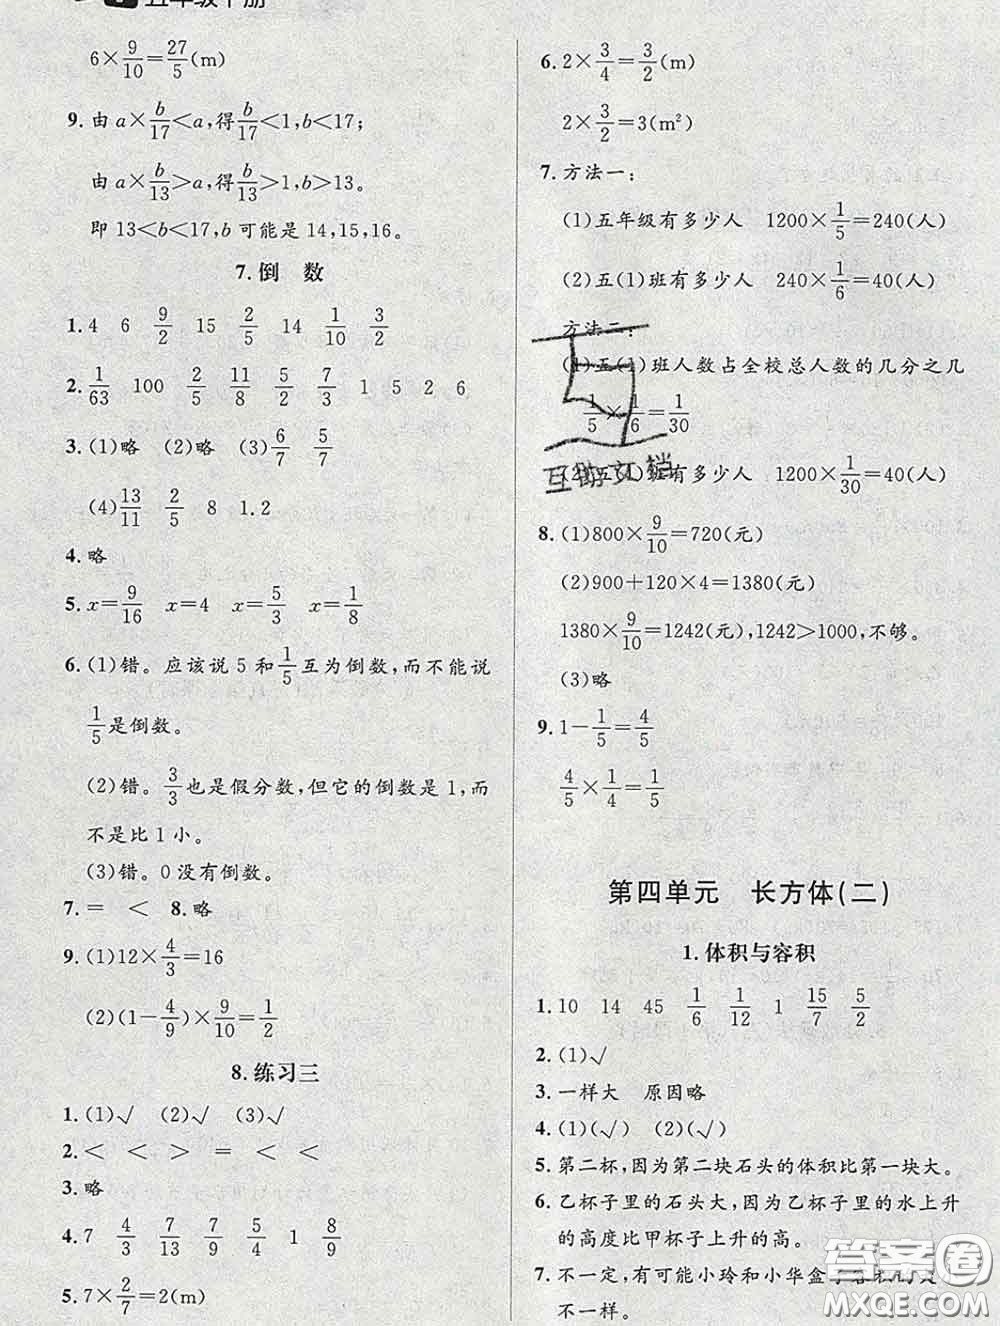 五年级下册
6×9/10=27/5(m)
9.由a×b/17<a,得b/17<1,b<17;
由a×b/13>a,得b/13>1,b>13。
即13<b<17,b可能是14,15,16。
7.倒 数
1.4 6 9/2 15 2/5 14 1/10 3/2
2.1/63 100 2/5 11/8 5/2 7/3 1 5 2 6
3.(1)略 (2)略 (3)6/7 5/7
(4)13/11 2/5 8 1.2
4.略
5.x=9/16 x=4 x=5/3 x=1/8
6.(1)错。应该说5和1/5互为倒数,而不能说
1/5是倒数。
(2)错。3/3也是假分数,但它的倒数是1,而
不是比1小。
(3)错。0没有倒数。
7.= < 8.略
9.(1)12×4/3=16
(2)(1-4/9)×9/10=1/2
8.练习三
1.(1)√ (2)√ (3)√
2.< < > = < <
3.略
4.7 4/3 7/13 7/9 7/4 1 8/9
5.7×2/7=2(m)
6.2×3/4=3/2(m)
2×3/2=3(m²)
7.方法一:
(1)五年级有多少人 1200×1/5=240(人)
(2)五(1)班有多少人 240×1/6=40(人)
方法二:
(1)五(1)班人数占全校总人数的几分之几
1/5×1/6=1/30
(2)五(1)班有多少人 1200×1/30=40(人)
互助文档
8.(1)800×9/10=720(元)
(2)900+120×4=1380(元)
1380×9/10=1242(元),1242>1000,不够。
(3)略
9.1-1/5=4/5
4/5×1/4=1/5
第四单元 长方体(二)
1.体积与容积
1.10 14 45 1/6 1/12 1 15/7 5/2
2.(1)√
3.一样大 原因略
4.(1)(√) (2)(√)
5.第二杯,因为第二块石头的体积比第一块大。
6.乙杯子里的石头大,因为乙杯子里的水上升
的高度比甲杯子上升的高。
7.不一定,有可能小玲和小华盒子
不一样。
答案圈
MXQE.COM